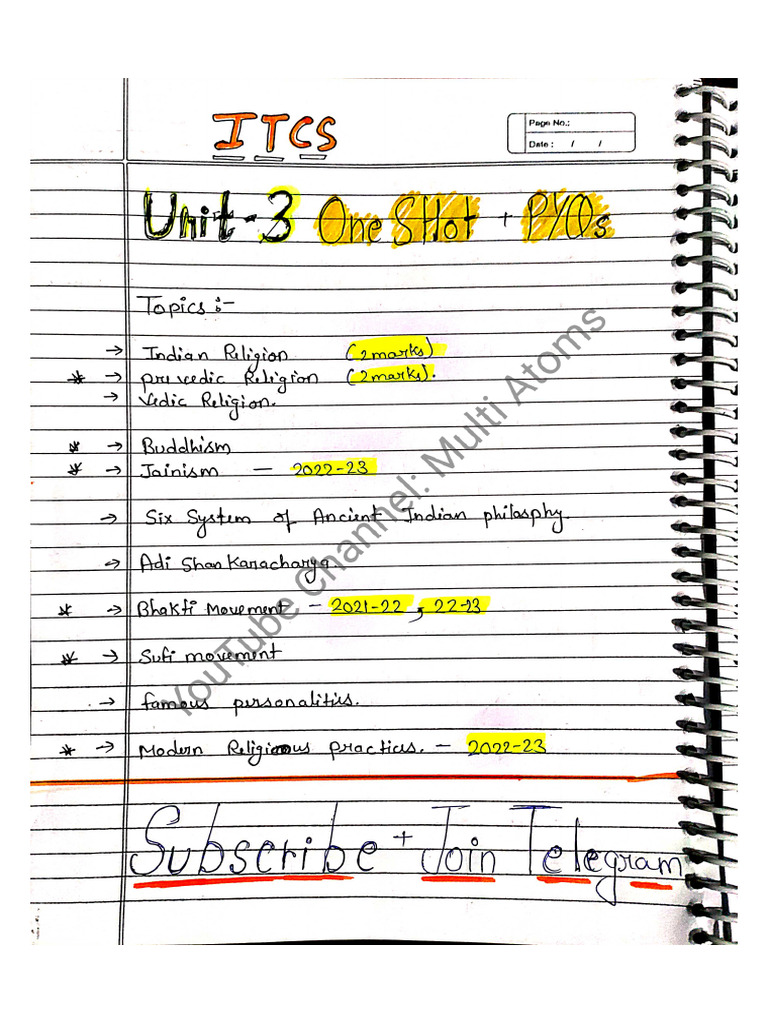 ITCS
Page No.:
Date : / /
Unit-3 One SHot + PYQs
Topics :-
→ Indian Religion (2 marks)
* → pre vedic Religion (2 marks).
→ Vedic Religion.
* → Buddhism
* → Jainism — 2022-23
→ Six System of Ancient Indian philasphy.
→ Adi Shankaracharya.
* → Bhakti Movement — 2021-22, 22-23
* → Sufi movement
→ famous personalities.
* → Modern Religious practices. — 2022-23
Subscribe + Join Telegram
YouTube Channel: Multi Atoms